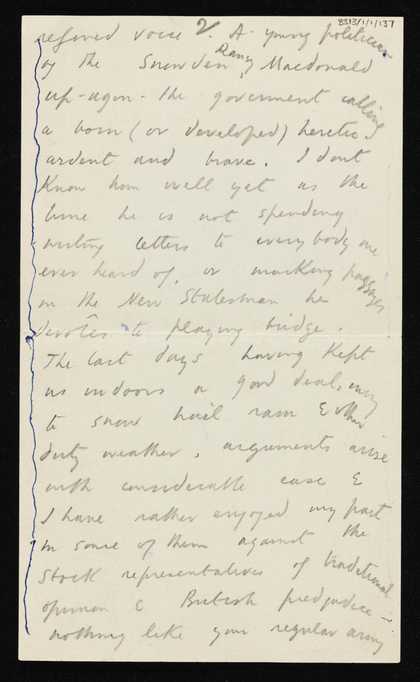 8313/1/1/137
refined voice 2. A young politician
of the Snowden, Ramsay Macdonald
up-agin-the government calling
a born (or developed) heretic
ardent and brave. I dont
know him well yet as the
time he is not spending
writing letters to everybody one
ever heard of, or marking passages
in the New Statesman he
devotes to playing bridge.
The last days having kept
us indoors a good deal, owing
to snow hail rain & other
dirty weather, arguments arise
with considerable ease &
I have rather enjoyed my part
in some of them against the
stock representatives of traditional
opinion & British predjudice -
nothing like your regular army